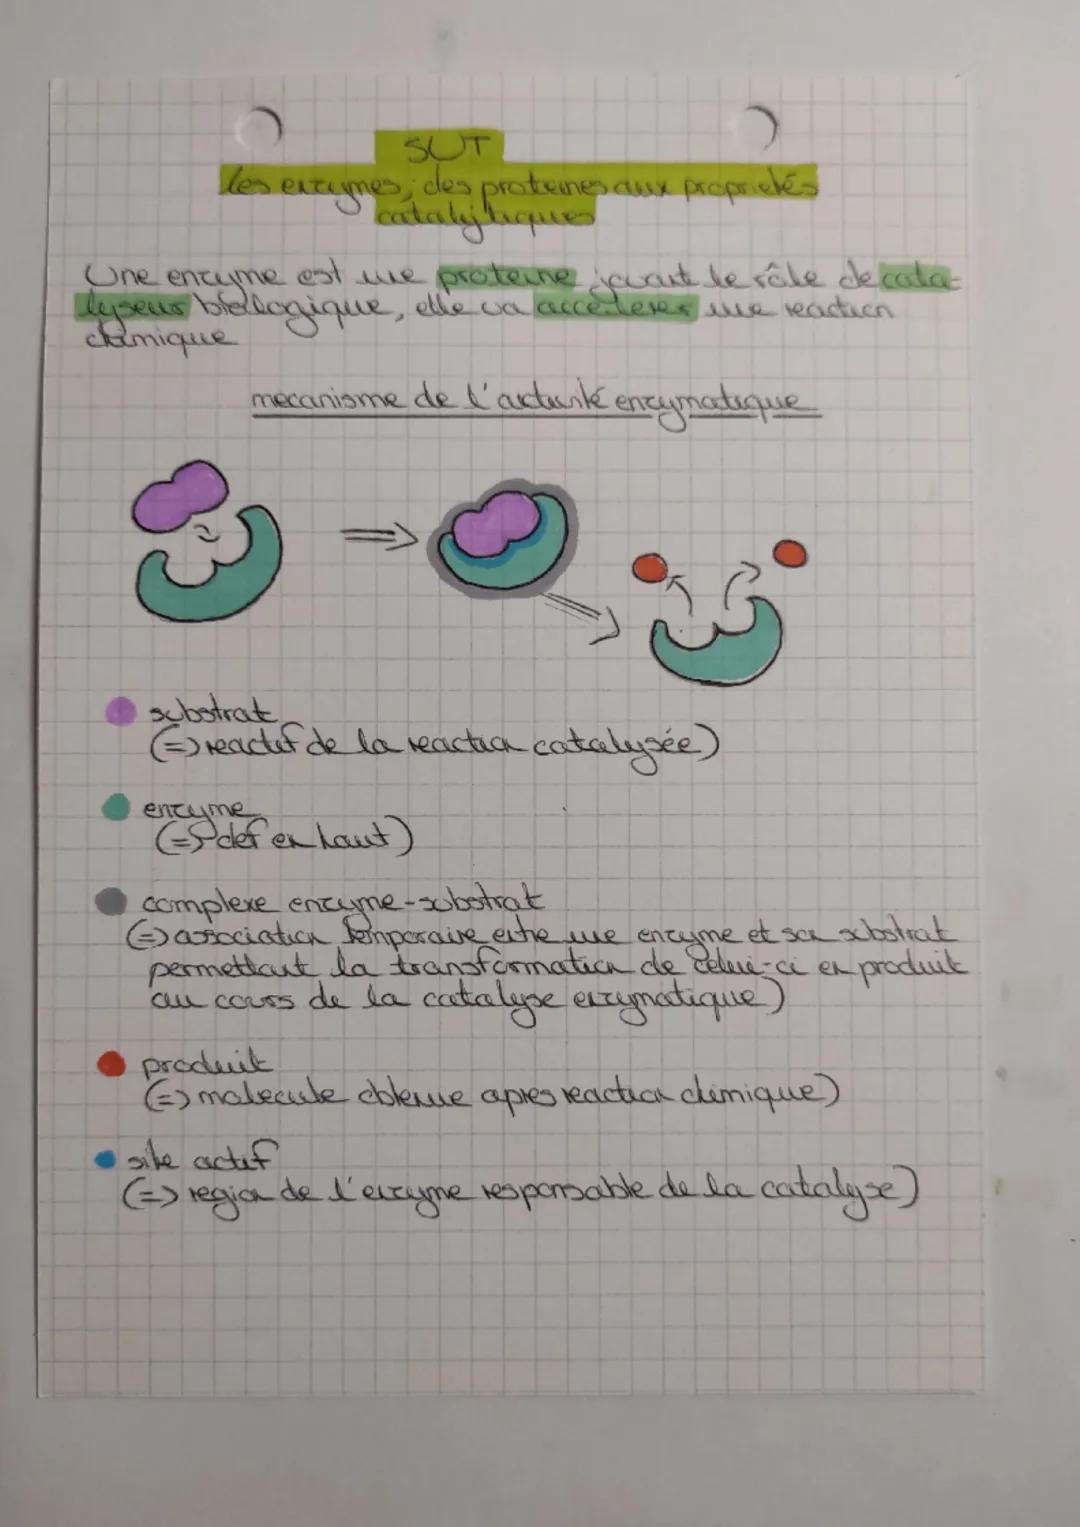 SVT
les enzymes, des proteines aux propriétés
catalytiques
Une enzyme est une proteine jouant le rôle de cata-
lyseur biologique, elle va accelerer une reaction
chimique
mecanisme de l'activité enzymatique
substrat
(=> reactif de la reaction catalysée)
enzyme
(=> def en haut)
complexe enzyme-substrat
(=> association temporaire entre une enzyme et son substrat
permettant la transformation de celui-ci en produit
au cours de la catalyse enzymatique)
produit
(=> molecule obtenue apres reaction chimique)
site actif
(=> region de l'enzyme responsable de la catalyse)